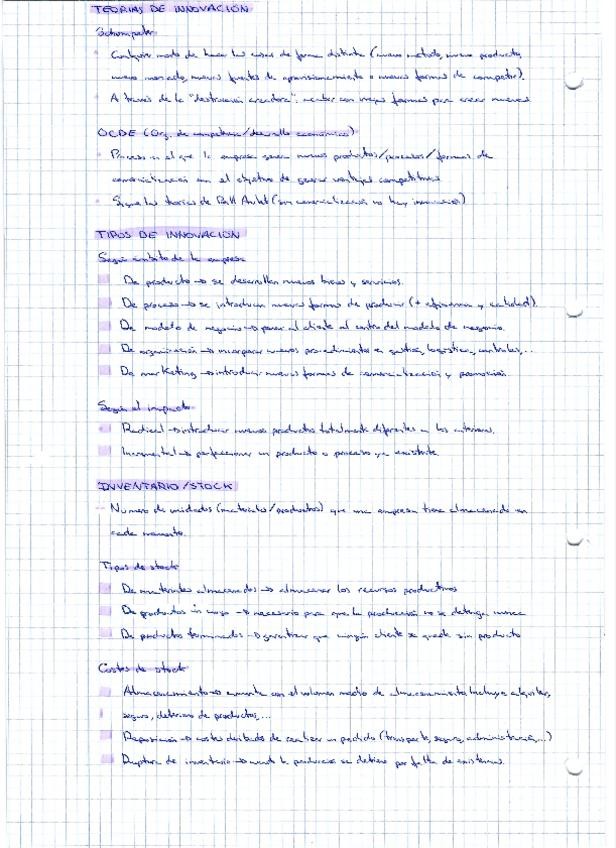 TEORÍAS DE INNOVACIÓN
Schumpeter
Cualquier modo de hacer las cosas de forma distinta (nuevo método, nuevo producto,
nuevo mercado, nuevas fuentes de aprovisionamiento o nuevas formas de competir).
A través de la "destrucción creativa": acabar con viejas formas para crear nuevas
OCDE (Org. de desarrollo económico)
Proceso en el que la empresa genera nuevos productos/procesos/formas de
comercialización con el objetivo de generar ventajas competitivas
Sigue las teorías de (sin comercialización no hay innovación)
TIPOS DE INNOVACIÓN
Según ámbito de la empresa
De producto → se desarrollan nuevos bienes y servicios.
De proceso → se introducen nuevas formas de producir (+ eficiencia y calidad).
De modelo de negocio → poner al cliente al centro del modelo de negocio.
De organización → incorporar nuevos procedimientos en gestión, logística, controles,...
De marketing → introducir nuevas formas de comercialización y promoción.
Según el impacto
Radical → introducir nuevos productos totalmente diferentes a los anteriores.
Incremental → perfeccionar un producto o proceso ya existente
INVENTARIO/STOCK
Número de unidades (materiales/productos) que una empresa tiene almacenado en
cada momento.
Tipos de stock
De materiales almacenados → almacenar los recursos productivos
De productos en curso → necesario para que la producción no se detenga nunca
De productos terminados → garantizar que ningún cliente se quede sin producto
Costes de stock
Almacenamiento → aumenta con el volumen medio de almacenamiento. Incluye alquileres,
seguro, deterioro de productos,...
Reposición → costes derivados de realizar un pedido (transporte, seguro, administración,...)
Ruptura de inventario → cuando la producción se detiene por falta de existencias.